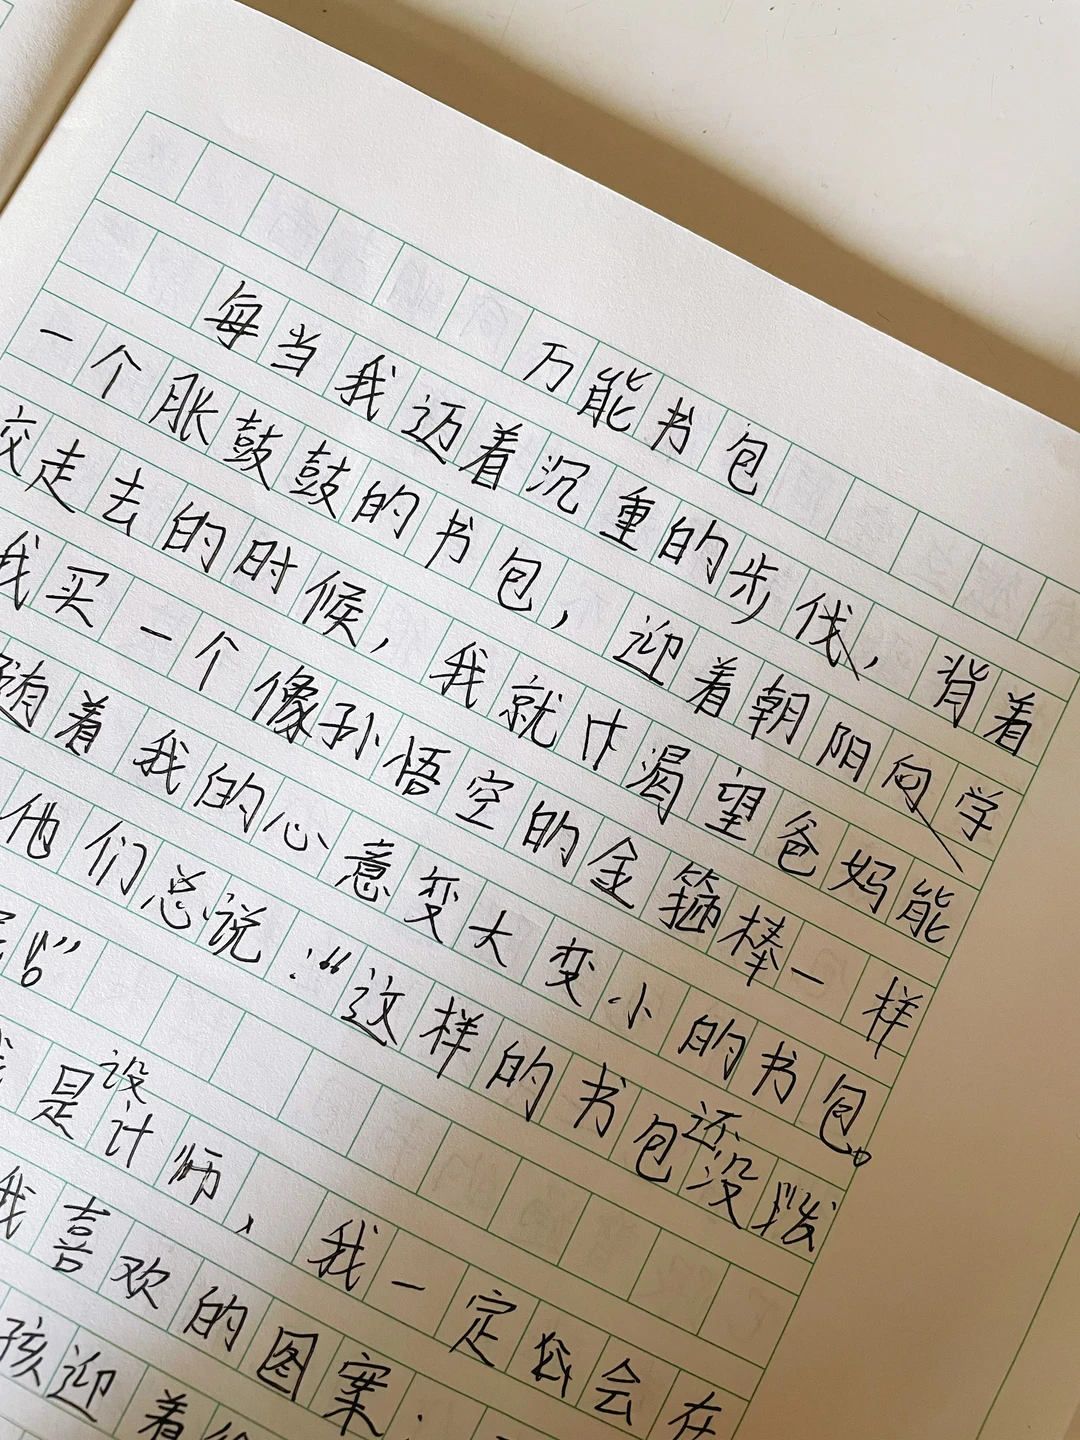 万能书包
每当我迈着沉重的步伐，背着
一个胀鼓鼓的书包，迎着朝阳向学
校走去的时候，我就渴望爸妈能
我买一个像孙悟空的金箍棒一样
随着我的心意变大变小的书包。
他们总说：“这样的书包还没发
！”
我是设计师，我一定会在
我喜欢的图案
孩迎着